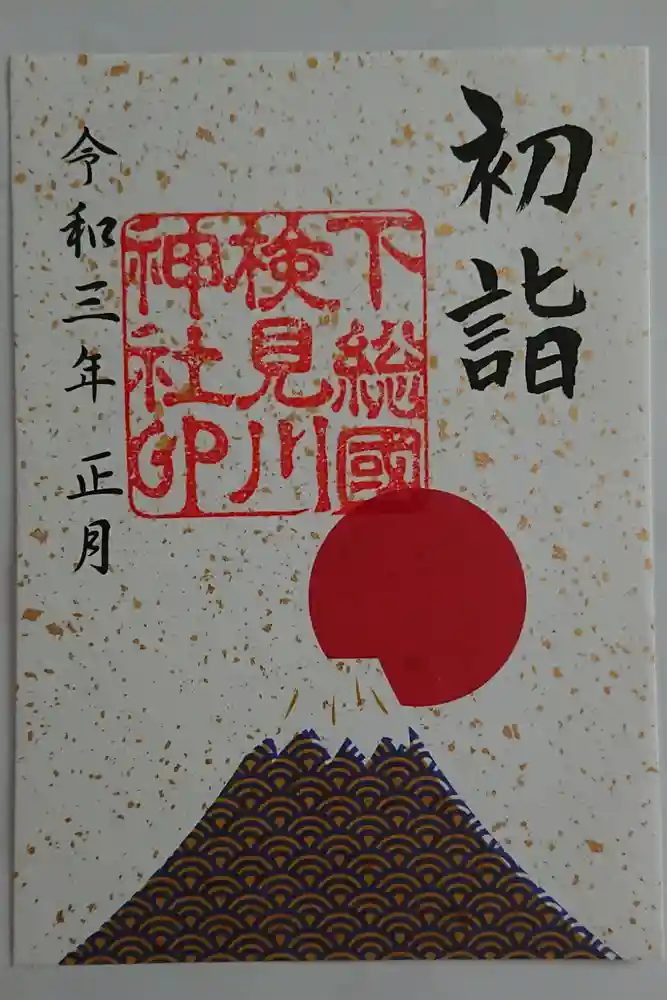 初詣
下総國
検見川
神社印
令和三年 正月